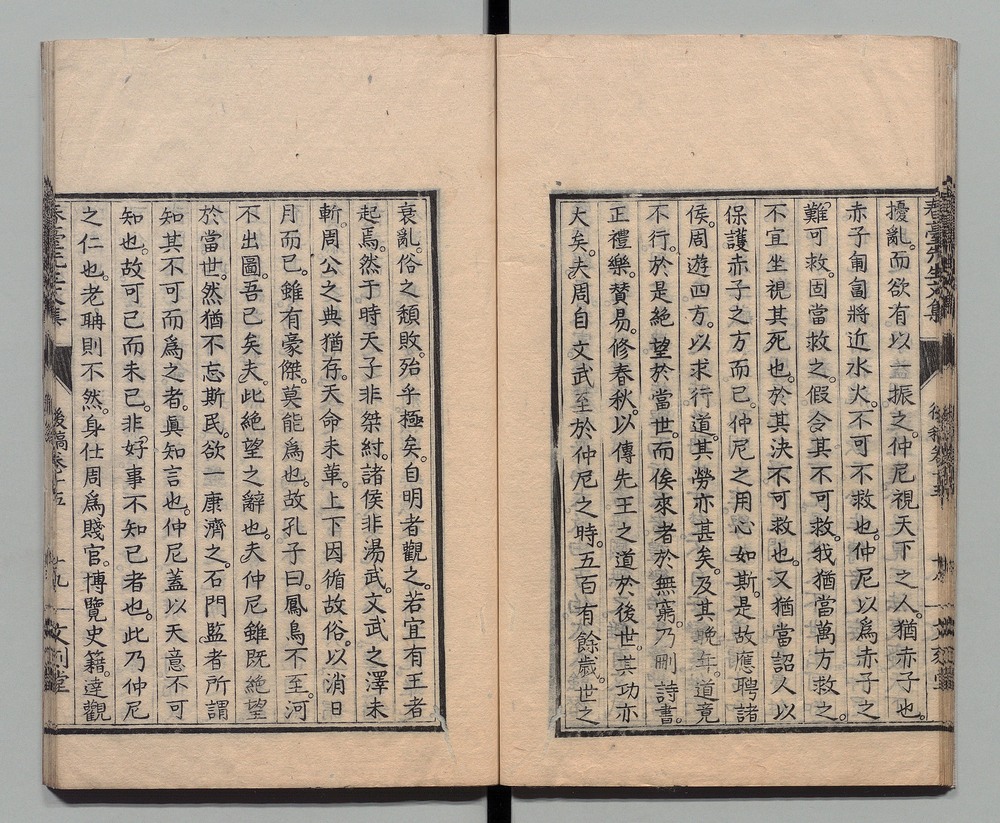 擾亂。而欲有以一振之。仲尼視天下之人。猶赤子也。
赤子匍匐將近水火。不可不救也。仲尼以爲赤子之
難可救。固當救之。假令其不可救。我猶當萬方救之。
不宜坐視其死也。於其決不可救也。又猶當詔人以
保護赤子之方而已。仲尼之用心如斯。是故應聘諸
侯。周遊四方。以求行道。其勞亦甚矣。及其晚年。道竟
不行。於是絶望於當世。而俟來者於無窮。乃刪詩書。
正禮樂。賛易。修春秋。以傳先王之道於後世。其功亦
大矣。夫周自文武至於仲尼之時。五百有餘歳。世之
衰亂。俗之頽敗。殆乎極矣。自明者觀之。若宜有王者
起焉。然于時天子非桀紂。諸侯非湯武。文武之澤未
斬。周公之典猶存。天命未革。上下因循故俗。以消日
月而已。雖有豪傑。莫能爲也。故孔子曰。鳳鳥不至。河
不出圖。吾已矣夫。此絶望之辭也。夫仲尼雖既絶望
於當世。然猶不忘斯民。欲一康濟之。石門監者所謂
知其不可而爲之者。眞知言也。仲尼蓋以天意不可
知也。故可已而未已。非好事不知已者也。此乃仲尼
之仁也。老聃則不然。身仕周爲賤官。博覽史籍。達觀
春臺先生文集 後稿卷十五 十九